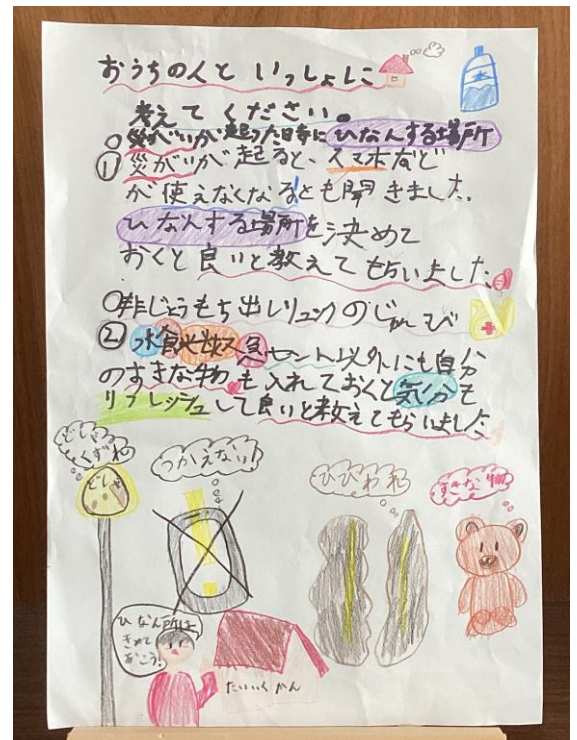 おうちの人と いっしょに
水
考えてください。
○災がいが起った時に ひなんする場所
① 災がいが起ると、スマホなど
が使えなくなるとも聞きました。
ひなんする場所を決めて
おくと良いと教えてもらいました。
○非じょうもち出しリュックのじゅんび
② 水食出セット以外にも自分
のすきな物も入れておくと気分も
リフレッシュして良いと教えてもらいました
どしゃくずれ
どしゃ
つかえない!
ひびわれ
すきな物
ひなん所は
きめて
おこう!
たいいくかん